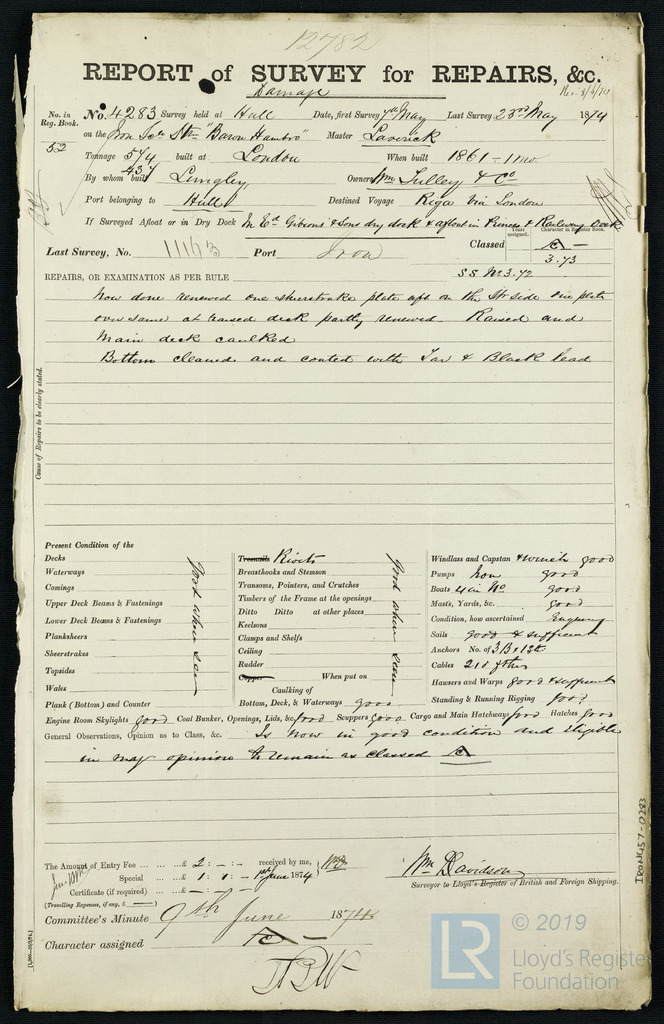 12782
REPORT of SURVEY for REPAIRS, &c.
Damage
Rec. 8/6/74
No. in Reg. Book. No. 4283 Survey held at Hull Date, first Survey 7th May Last Survey 23rd May 1874
52 on the Iron Scw Str "Baron Hambro" Master Laverick
Tonnage 574 437 built at London When built 1861 - 11 mo
By whom built Lungley Owners Wm Tulley & Co
Port belonging to Hull Destined Voyage Riga via London
If Surveyed Afloat or in Dry Dock In Ed Gibson & Sons dry dock & afloat in Princes & Railway Dock
Years assigned. Character in Register book.
Last Survey, No. 11163 Port Iron Classed
3.73
REPAIRS, OR EXAMINATION AS PER RULE SS No 3.72
Now done renewed one sheerstrake plate aft on the St side one plate
over same at raised deck partly renewed Raised and
Main deck caulked
Bottom cleaned and coated with Tar & Black lead
Cause of Repairs to be clearly stated.
Present Condition of the
Decks
Waterways
Comings
Upper Deck Beams & Fastenings
Lower Deck Beams & Fastenings
Planksheers
Sheerstrakes
Topsides
Wales
Plank (Bottom) and Counter
Good where seen
Treenails Rivets
Breasthooks and Stemson
Transoms, Pointers, and Crutches
Timbers of the Frame at the openings
Ditto Ditto at other places
Keelsons
Clamps and Shelfs
Ceiling
Rudder
Copper When put on
Caulking of
Bottom, Deck, & Waterways good
Good where seen
Windlass and Capstan & winch good
Pumps Iron good
Boats 4 in No good
Masts, Yards, &c. good
Condition, how ascertained Enquiry
Sails good & sufficient
Anchors No. of 3 B &
Cables 210 fthms
Hawsers and Warps good & sufficient
Standing & Running Rigging good
Engine Room Skylights good Coal Bunker, Openings, Lids, &c. good Scuppers good Cargo and Main Hatchways good Hatches good
General Observations, Opinion as to Class, &c. Is now in good condition and eligible
in my opinion to remain as classed
The Amount of Entry Fee ... ... £ 2 : - : - received by me,
Special ... ... £ 1 : 1 : - 1st June 1874
Certificate (if required) ... £ - : - : -
(Travelling Expenses, if any, £ —)
Wm Davidson
Surveyor to Lloyd's Register of British and Foreign Shipping.
Committee's Minute 9th June 1874
Character assigned
IRON457-0283
LR
© 2019
Lloyd's Register
Foundation